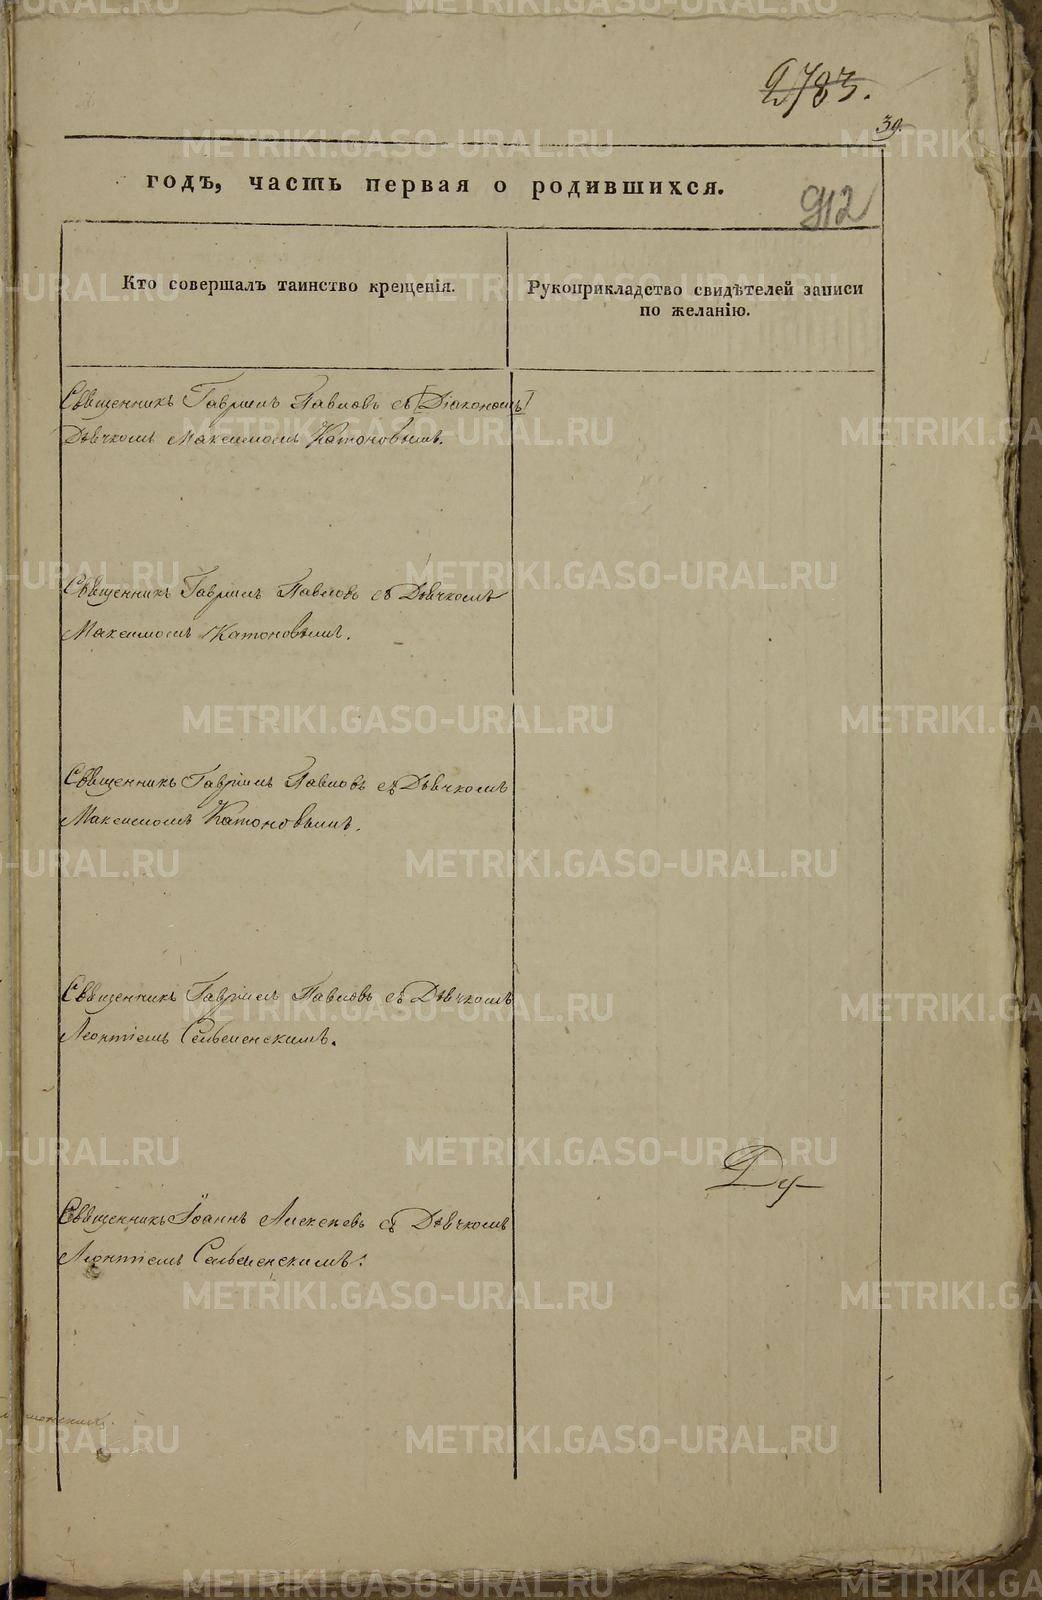 2783.
39.
годъ, часть первая о родившихся.
912
Кто совершалъ таинство крещенія.
Рукоприкладство свидѣтелей записи
по желанію.
Священникъ Гавріилъ Павловъ съ [Діакономъ]
Дьячкомъ Максимомъ Катоновымъ.
Священникъ Гавріилъ Павловъ съ Дьячкомъ
Максимомъ Катоновымъ.
Священникъ Гавріилъ Павловъ съ Дьячкомъ
Максимомъ Катоновымъ.
Священникъ Гавріилъ Павловъ съ Дьячкомъ
Леонтіемъ Сельменскимъ.
Священникъ Іоаннъ Алексѣевъ съ Дьячкомъ
Леонтіемъ Сельменскимъ.
METRIKI.GASO-URAL.RU